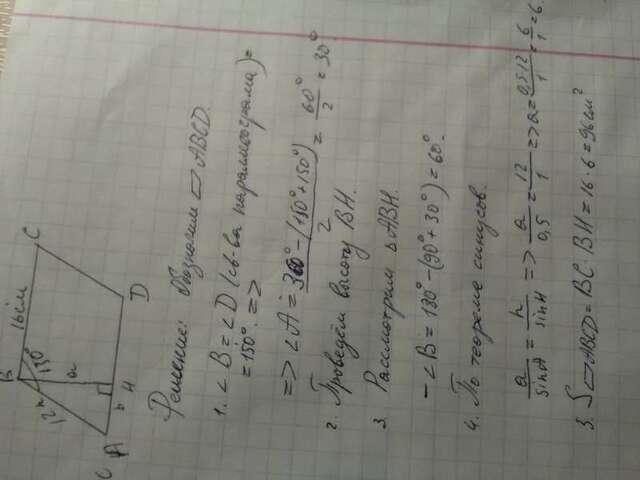 B 16см C
150°
12 h a
C A b H D
Решение: Обозначим ▱ ABCD.
1. ∠B = ∠D (св-ва параллограма) =
= 150°. =>
=> ∠A = 360° - (150° + 150°) / 2 = 60° / 2 = 30°
2. Проведём высоту BH.
3. Рассмотрим △ABH.
- ∠B = 180° - (90° + 30°) = 60°.
4. По теореме синусов.
a / sinA = h / sinH => a / 0,5 = 12 / 1 => a = 0,5·12 / 1 = 6 / 1 = 6.
5. S▱ABCD = BC · BH = 16 · 6 = 96см²